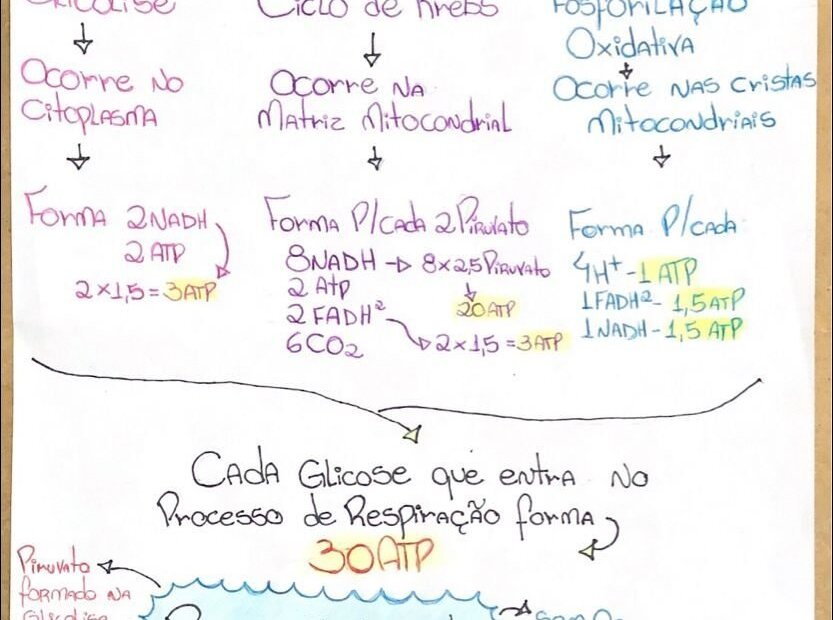 Glicólise
Ocorre no
Citoplasma
Forma 2NADH
2 ATP
2 x 1,5 = 3ATP
Ciclo de Krebs
Ocorre na
Matriz Mitocondrial
Forma P/cada 2 Piruvato
8NADH → 8x2,5 Piruvato
20 ATP
2 Atp
2 FADH²
6CO2
2 x 1,5 = 3 ATP
Fosforilação
Oxidativa
Ocorre nas cristas
Mitocondriais
Forma P/cada
4H+ - 1 ATP
1FADH² - 1,5 ATP
1NADH - 1,5 ATP
Cada Glicose que entra no
Processo de Respiração forma
30 ATP
Piruvato
formado na
Glicólise